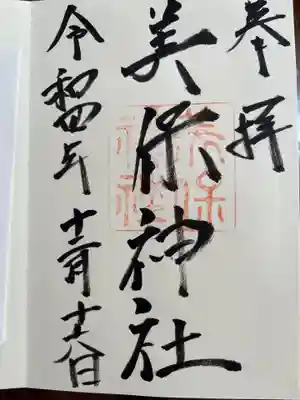 奉拝
美保神社
令和四年十二月十六日
美保
神社